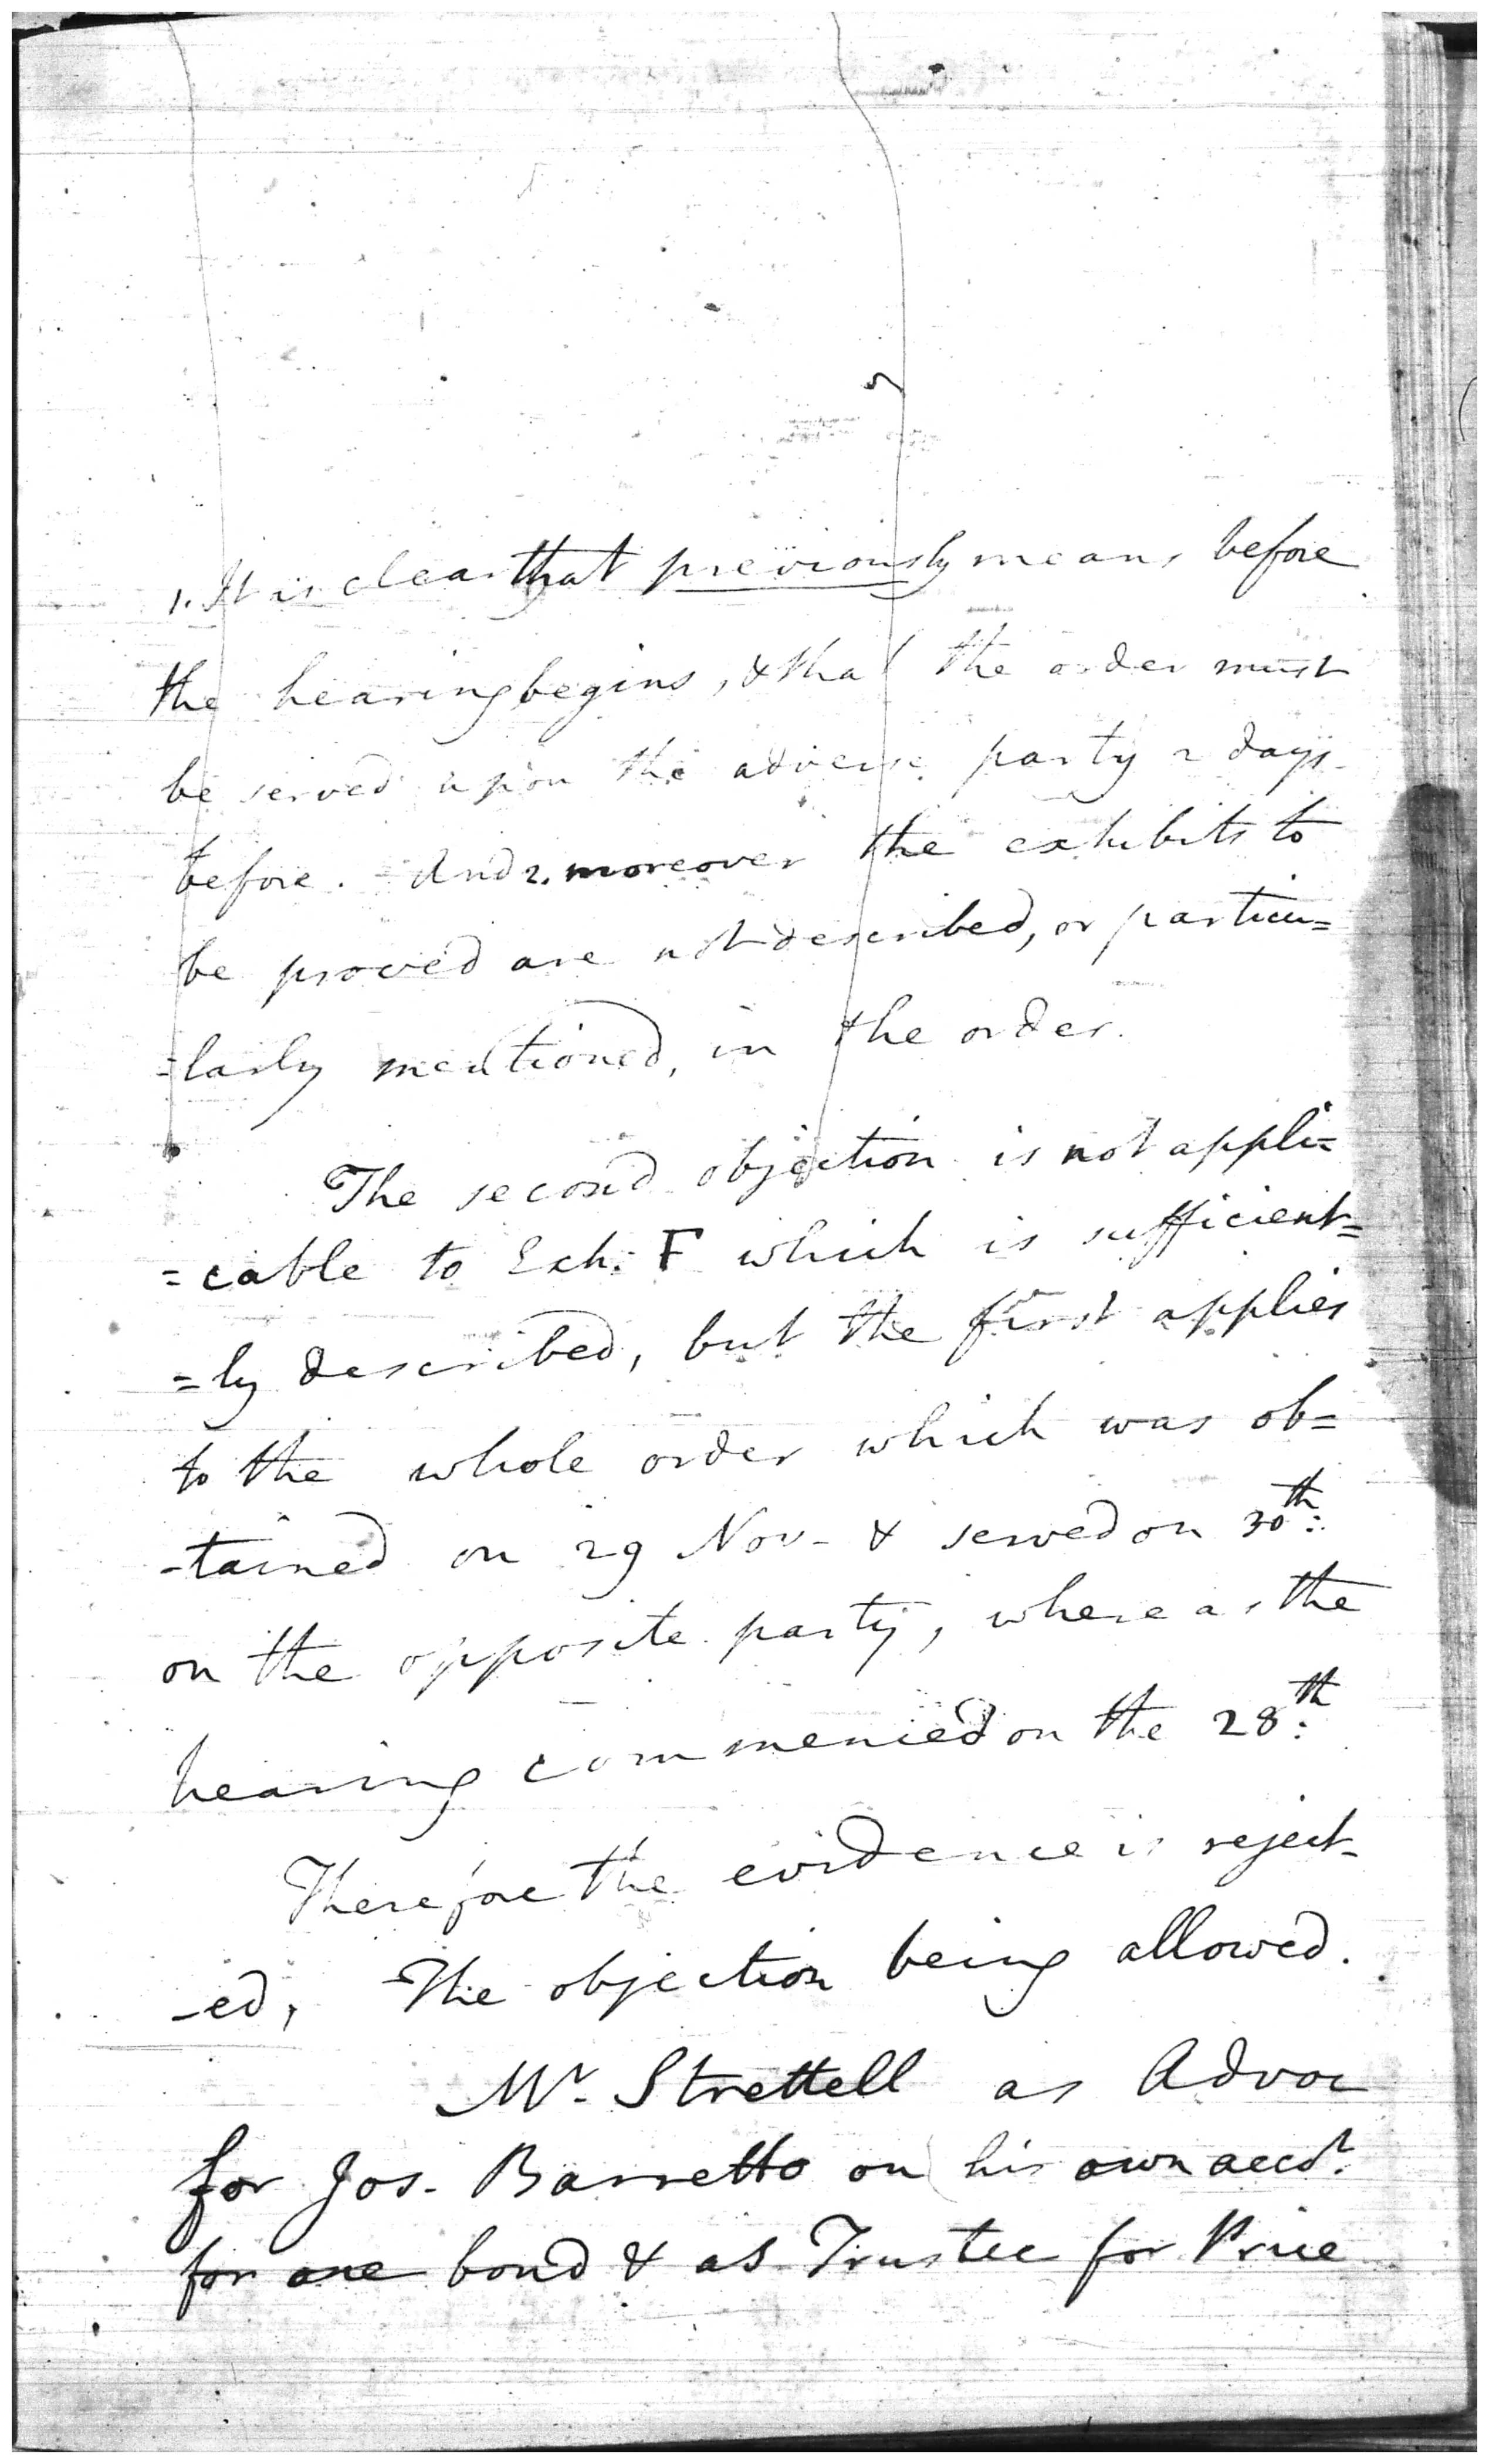 1. It is clear that previously means before
the hearing begins, & that the order must
be served upon the adverse party 2 days
before. And 2. moreover the exhibits to
be proved are not described, or particu=
=larly mentioned, in the order.
The second objection is not appli=
=cable to Exh: F which is sufficient=
=ly described, but the first applies
to the whole order which was ob=
-tained on 29 Nov- & served on 30th:
on the opposite party, whereas the
hearing commenced on the 28th:
Therefore the evidence is reject-
-ed, The objection being allowed.
Mr. Strettell as Advoc
for Jos. Barretto on his own acct.
for one bond & as Trustee for Price